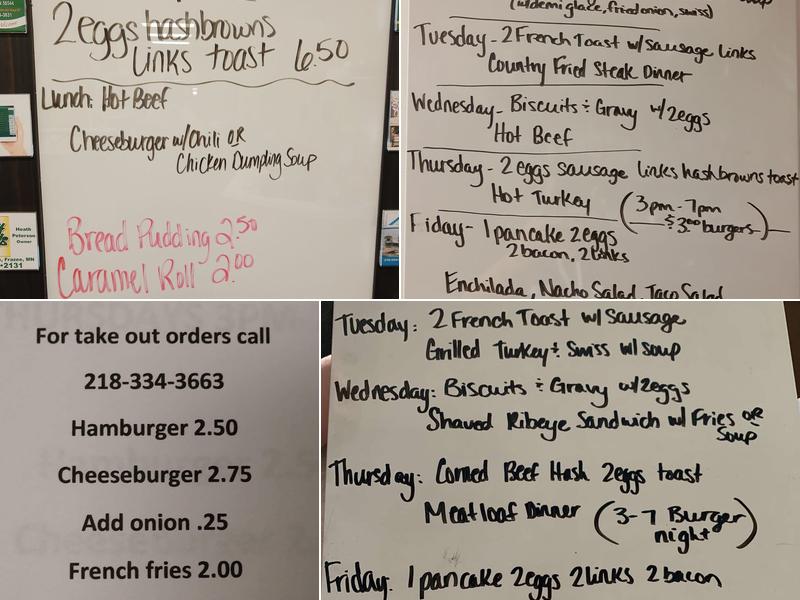 2eggs hashbrowns
links toast 6.50
Lunch: Hot Beef
Cheeseburger w/Chili OR
Chicken Dumpling Soup
Bread Pudding 2.50
Caramel Roll 2.00
Heath
Peterson
Owner
, Frazee, MN
-2131
(w/demi glaze, fried onion, swiss)
Tuesday - 2 French Toast w/sausage links
Country Fried Steak Dinner
Wednesday - Biscuits & Gravy w/2eggs
Hot Beef
Thursday - 2 eggs sausage links hashbrowns toast
Hot Turkey (3pm-7pm
$3.00 burgers)
Friday - 1 pancake 2eggs
2 bacon, 2 links
Enchilada, Nacho Salad, Taco Salad
For take out orders call
218-334-3663
Hamburger 2.50
Cheeseburger 2.75
Add onion .25
French fries 2.00
Tuesday: 2 French Toast w/ Sausage
Grilled Turkey & Swiss w/ soup
Wednesday: Biscuits & Gravy w/2eggs
Shaved Ribeye Sandwich w/ Fries OR
Soup
Thursday: Corned Beef Hash 2eggs toast
Meatloaf Dinner (3-7 Burger
night)
Friday. 1 pancake 2eggs 2links 2 bacon